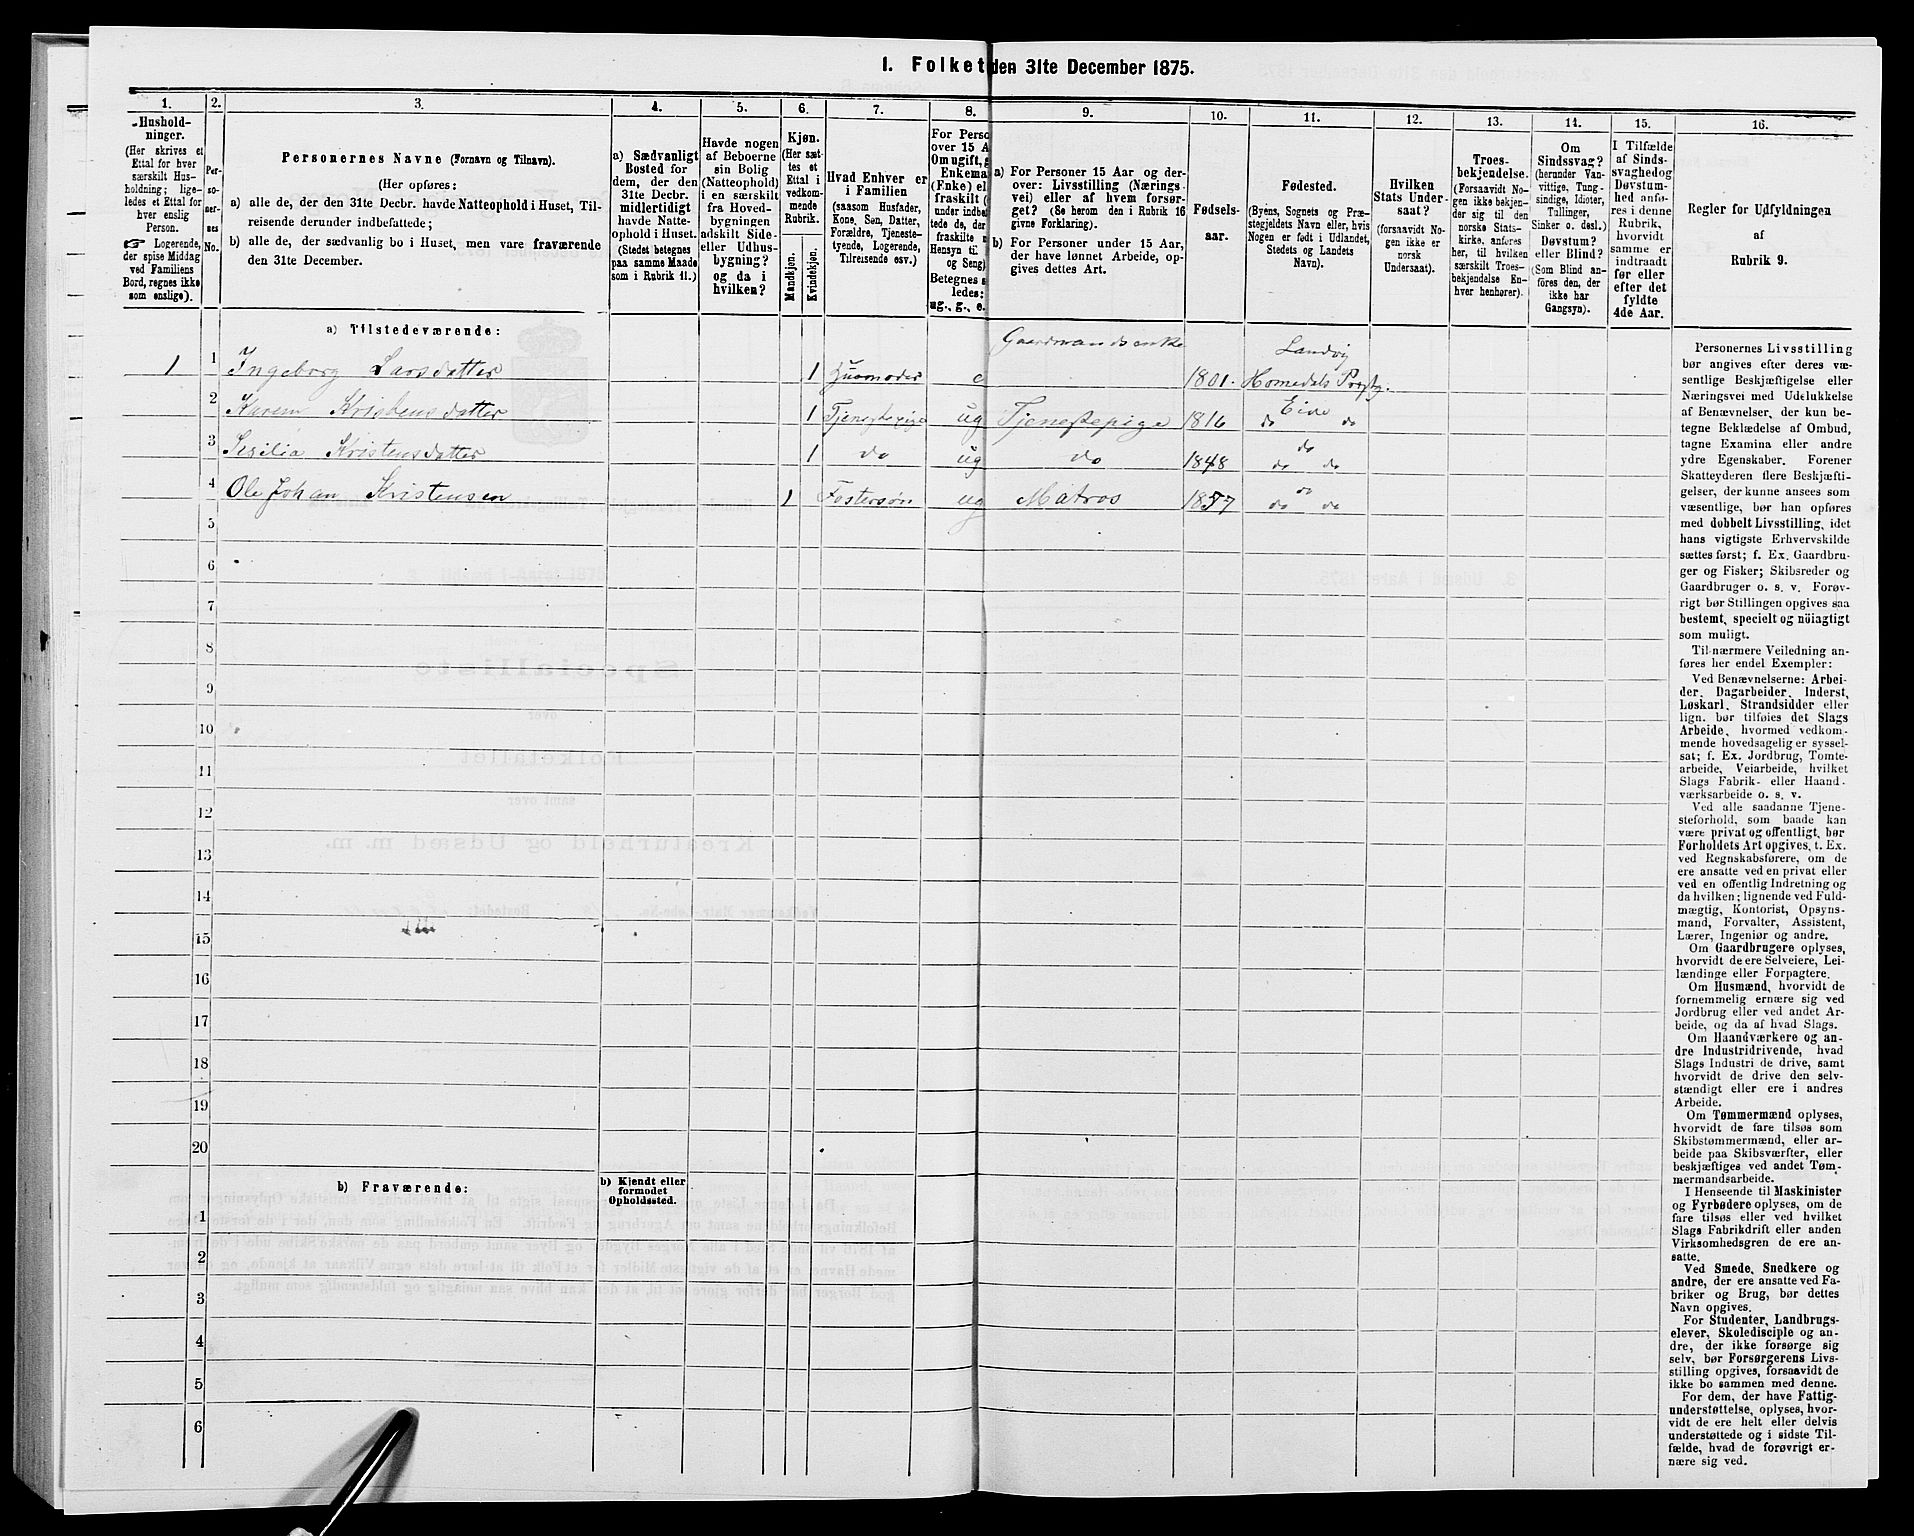 I. Folket den 31te December 1875.
1. 2. 3. 4. 5. 6. 7. 8. 9. 10. 11. 12. 13. 14. 15. 16.
Hushold-
ninger.
(Her skrives et
Ettal for hver
særskilt Hus-
holdning; lige-
ledes et Ettal for
hver enslig
Person.
☞ Logerende,
der spise Middag
ved Familiens
Bord, regnes ikke
som enslige).
Per-
so-
ner-
nes
No.
Personernes Navne (Fornavn og Tilnavn).
(Her opføres:
a) alle de, der den 31te Decbr. havde Natteophold i Huset, Til-
reisende derunder indbefattede;
b) alle de, der sædvanlig bo i Huset, men vare fraværende
den 31te December.
a) Sædvanligt
Bosted for
dem, der den
31te Decbr.
midlertidigt
havde Natte-
ophold i Huset.
(Stedet betegnes
paa samme Maade
som i Rubrik 11.)
Havde nogen
af Beboerne
sin Bolig
(Natteophold)
i en særskilt
fra Hoved-
bygningen
adskilt Side-
eller Udhus-
bygning?
og da i
hvilken?
Kjøn.
(Her sæt-
tes et
Ettal i
vedkom-
mende
Rubrik.
Mandkjøn.
Kvindekjøn.
Hvad Enhver er
i Familien
(saasom Husfader,
Kone, Søn, Datter,
Forældre, Tjeneste-
tyende, Logerende,
Tilreisende osv.).
For Perso
over 15 A
Om ugift, g
Enkema
(Fnke) el
fraskilt (
under indbe
tede de, der
fraskilte
Hensyn til
og Seng)
Betegnes s
ledes:
ug., g., e.
a) For Personer 15 Aar og der-
over: Livsstilling (Nærings-
vei) eller af hvem forsør-
get? (Se herom den i Rubrik 16
givne Forklaring).
b) For Personer under 15 Aar,
der have lønnet Arbeide, op-
gives dettes Art.
Fødsels-
aar.
Fødested.
(Byens, Sognets og Præ-
stegjeldets Navn eller, hvis
Nogen er født i Udlandet,
Stedets og Landets
Navn).
Hvilken
Stats Under-
saat?
(forsaavidt No-
gen ikke er
norsk
Undersaat).
Troes-
bekjendelse.
(Forsaavidt No-
gen ikke bekjen-
der sig til den
norske Stats-
kirke, anføres
her, til hvilken
særskilt Troes-
bekjendelse En-
hver henhører).
Om
Sindssvag?
(herunder Van-
vittige, Tung-
sindige, Idioter,
Tullinger,
Sinker o. desl.)
Døvstum?
eller Blind?
(Som Blind an-
føres den, der
ikke har
Gangsyn).
I Tilfælde
af Sinds-
svaghed og
Døvstum-
hed anfø-
res i denne
Rubrik,
hvorvidt
samme er
indtraadt
før eller
efter det
fyldte
4de Aar.
Regler for Udfyldningen
af
Rubrik 9.
a) Tilstedeværende:
1 1 Ingeborg Larsdatter 1 Husmoder e Gaardmandsenke 1801. Landvig Homedals Prgtj.
2 Karen Kristensdatter 1 Tjenestepige ug Tjenestepige 1816 do Eide do
3 Sesilia Kristensdatter 1 do ug do 1848 do do do
4 Ole Johan Kristensen 1 Fostersøn ug Matros 1857 do do do
5
6
7
8
9
10
11
12
13
14
15
16
17
18
19
20
b) Fraværende:
b) Kjendt eller
formodet
Opholdssted.
1
2
3
4
5
6
Personernes Livsstilling
bør angives efter deres væ-
sentlige Beskjæftigelse eller
Næringsvei med Udelukkelse
af Benævnelser, der kun be-
tegne Beklædelse af Ombud,
tagne Examina eller andre
ydre Egenskaber. Forener
Skatteyderen flere Beskjæfti-
gelser, der kunne ansees som
væsentlige, bør han opføres
med dobbelt Livsstilling, idet
hans vigtigste Erhvervskilde
sættes først; f. Ex. Gaardbru-
ger og Fisker; Skibsreder og
Gaardbruger o. s. v. Forøv-
rigt bør Stillingen opgives saa
bestemt, specielt og nöiagtigt
som muligt.
Til nærmere Veiledning an-
føres her endel Exempler:
Ved Benævnelserne: Arbei-
der, Dagarbeider, Inderst,
Løskarl, Strandsidder eller
lign. bør tilføies det Slags
Arbeide, hvormed vedkom-
mende hovedsagelig er syssel-
sat; f. Ex. Jordbrug, Tomte-
arbeide, Veiarbeide, hvilket
Slags Fabrik- eller Haand-
værksarbeide o. s. v.
Ved alle saadanne Tjene-
steforhold, som baade kan
være privat og offentligt, bør
Forholdets Art opgives, t. Ex.
ved Regnskabsførere, om de
ere ansatte ved en privat eller
ved en offentlig Indretning og
da hvilken; lignende ved Fuld-
mægtig, Kontorist, Opsyns-
mand, Forvalter, Assistent,
Lærer, Ingeniør og andre.
Om Gaardbrugere oplyses,
hvorvidt de ere Selveiere, Lei-
lændinge eller Forpagtere.
Om Husmænd, hvorvidt de
fornemmelig ernære sig ved
Jordbrug eller ved andet Ar-
beide, og da af hvad Slags.
Om Haandværkere og an-
dre Industridrivende, hvad
Slags Industri de drive, samt
hvorvidt de drive den selv-
stændigt eller ere i andres
Arbeide.
Om Tømmermænd oplyses,
hvorvidt de fare tilsøs som
Skibstømmermænd, eller ar-
beide paa Skibsværfter, eller
beskjæftiges ved andet Tøm-
mermandsarbeide.
I Henseende til Maskinister
og Fyrbødere oplyses, om de
fare tilsøs eller ved hvilket
Slags Fabrikdrift eller anden
Virksomhedsgren de ere an-
satte.
Ved Smede, Snedkere og
andre, der ere ansatte ved Fa-
briker og Brug, bør dettes
Navn opgives.
For Studenter, Landbrugs-
elever, Skoledisciple og an-
dre, der ikke forsørge sig
selv, bør Forsørgerens Livs-
stilling opgives, forsaavidt de
ikke bo sammen med denne.
For dem, der have Fattig-
understøttelse, oplyses, hvor-
vidt de ere helt eller delvis
understøttede og i sidste Til-
fælde, hvad de forøvrigt er-
nære sig ved.